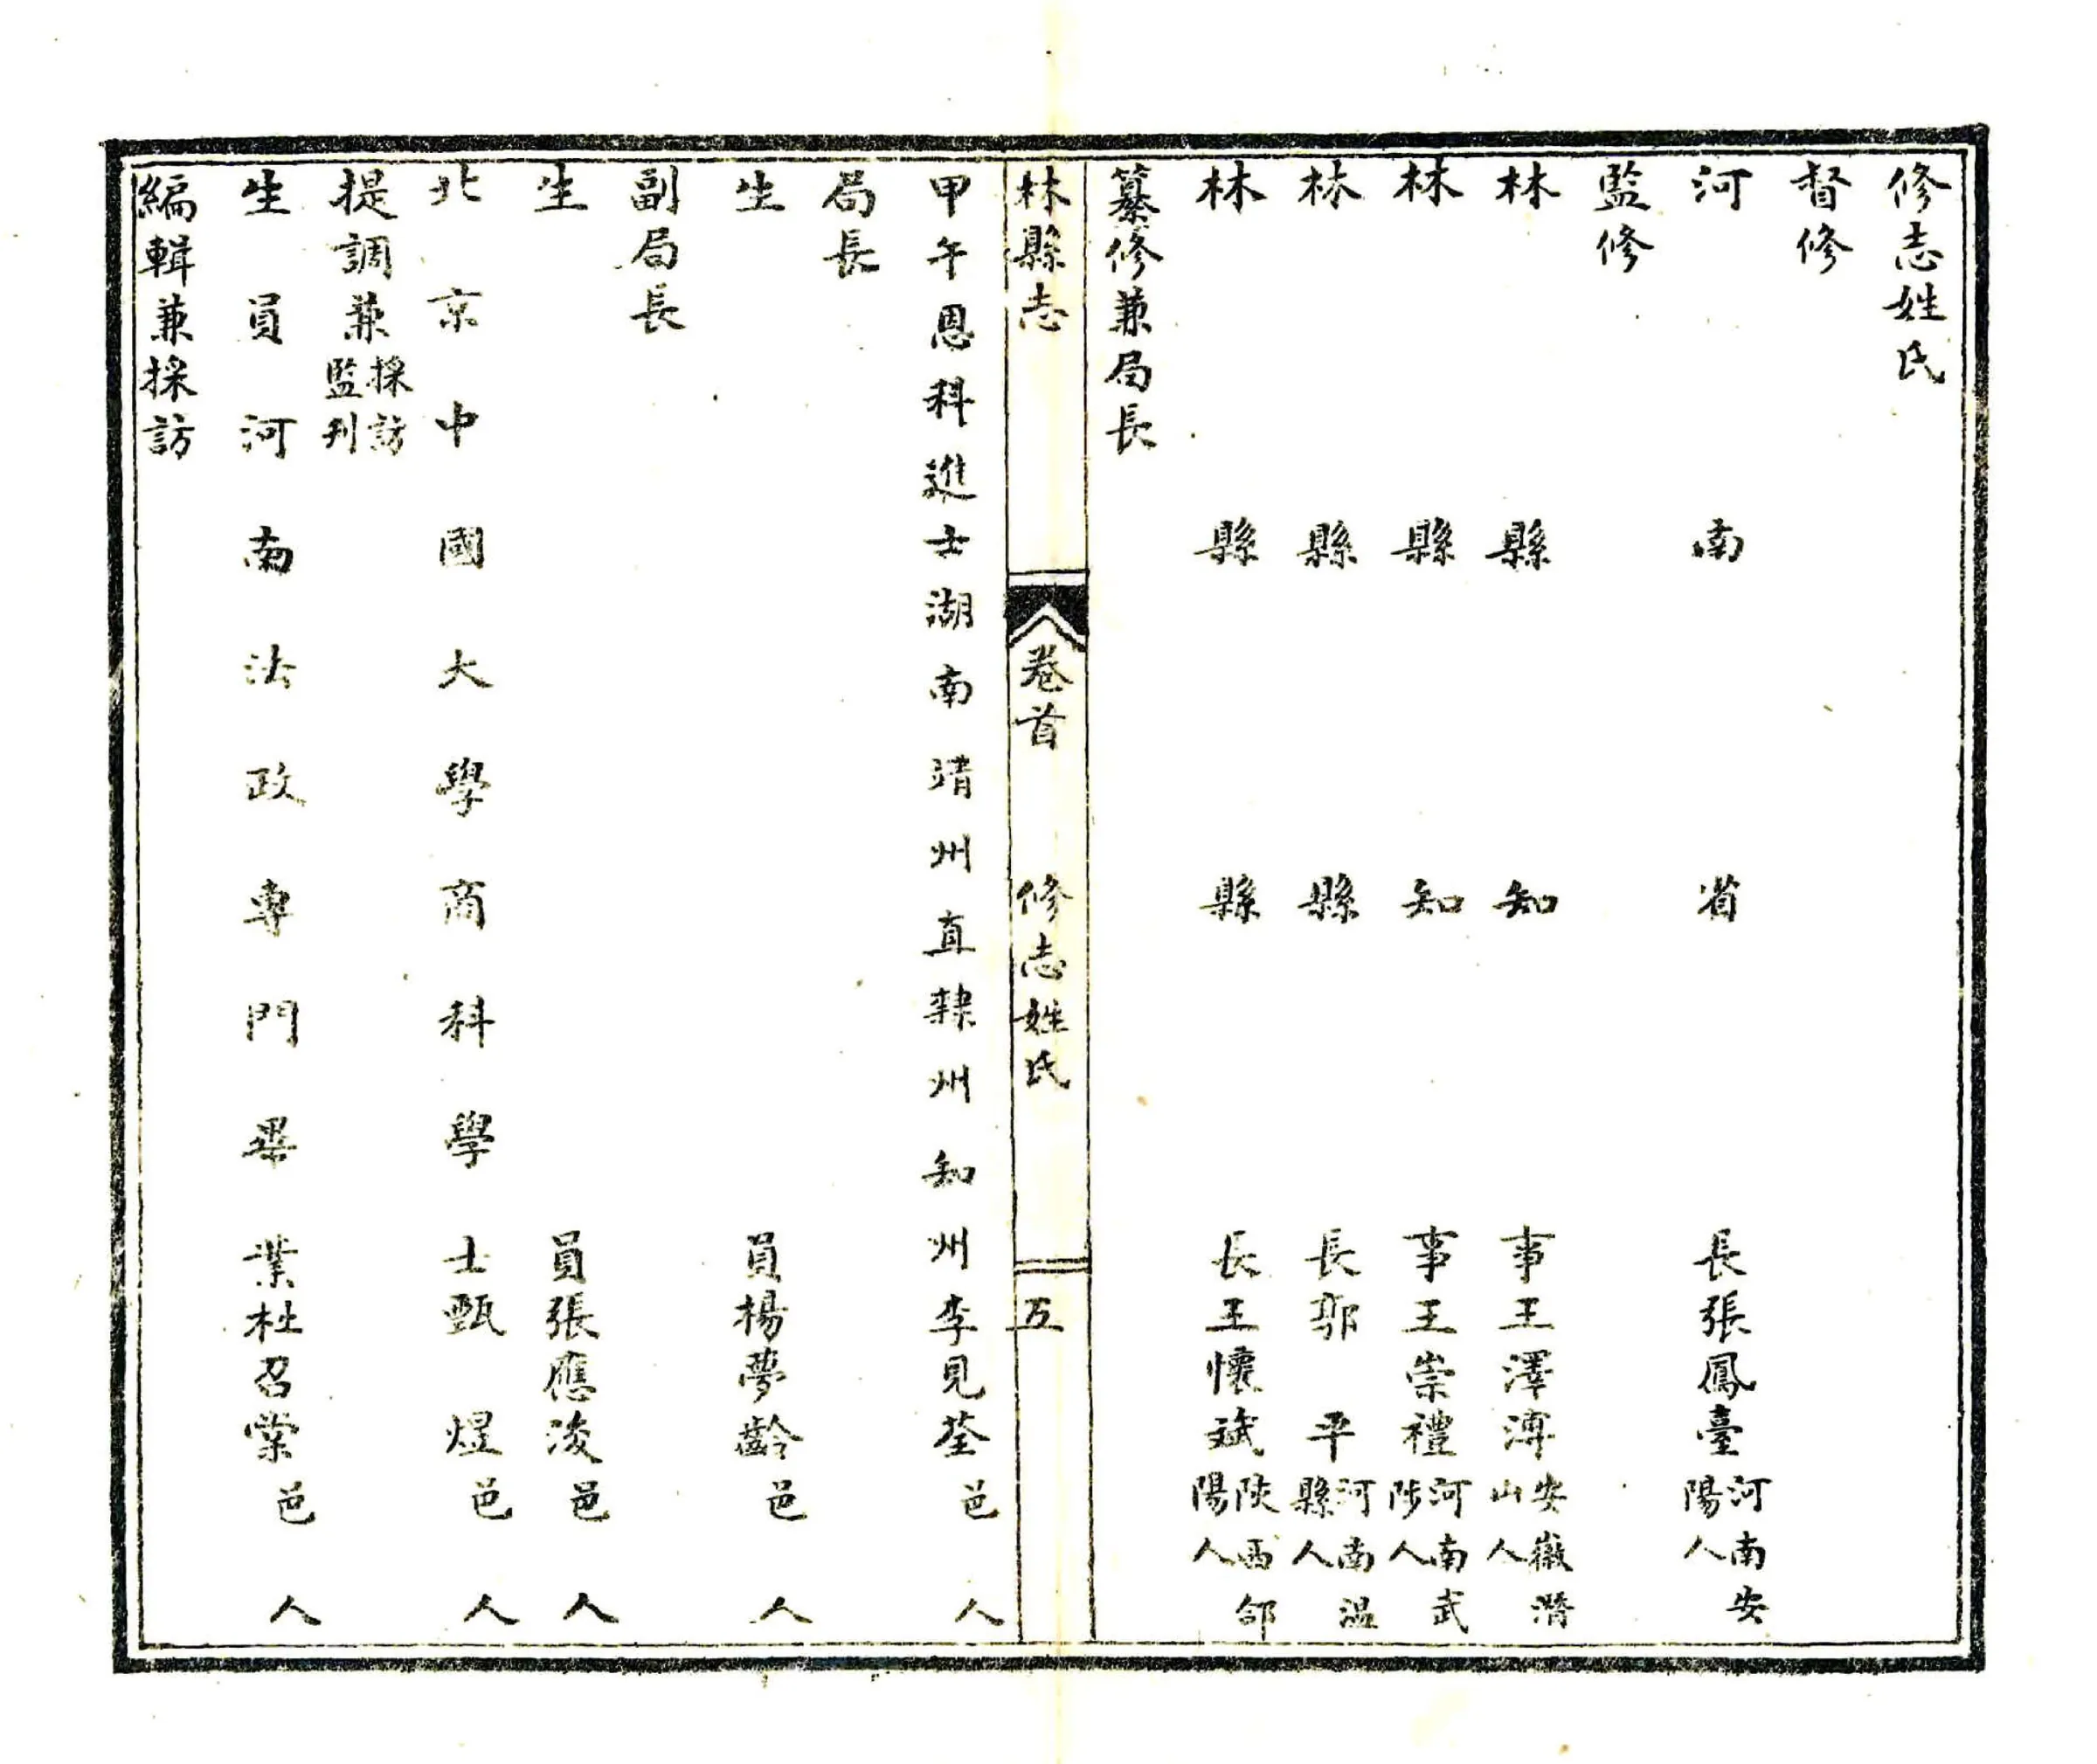 修志姓氏
督修
河南省長張鳳臺河南安陽人
監修
林縣知事王澤溥安徽潛山人
林縣知事王崇禮河南武陟人
林縣縣長郭平河南温縣人
林縣縣長王懷斌陝西郃陽人
纂修兼局長
林縣志 卷首 修志姓氏 五
甲午恩科進士湖南靖州直隸州知州李見荃邑人
局長
生員楊夢齡邑人
副局長
生員張應浚邑人
北京中國大學商科學士甄煜邑人
提調兼採訪監刋
生員河南法政專門畢業杜召棠邑人
編輯兼採訪